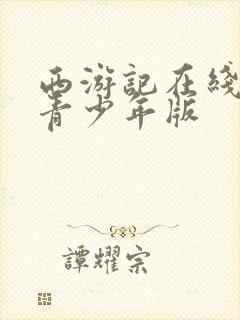 西游記在綫
青少年版
譚耀宗